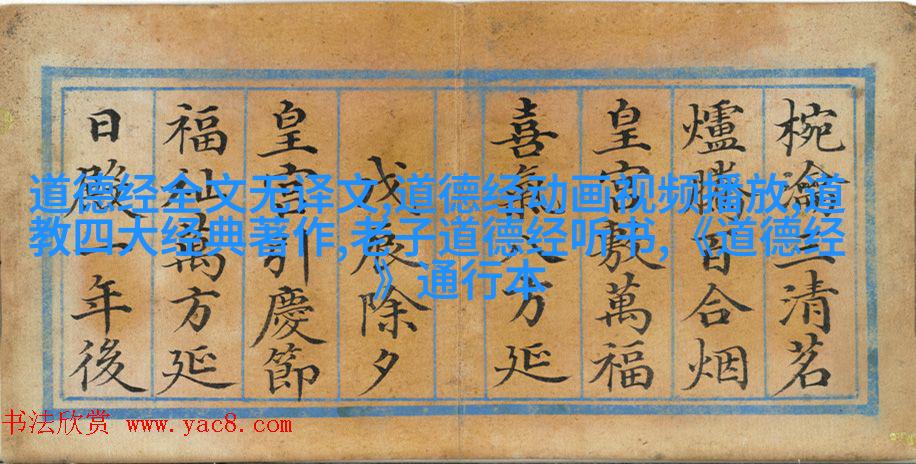 椀三清茗
爐騰百合烟
皇宮敷萬福
喜氣方延
戊辰除夕
皇宮引慶節
福祉萬方延
日一年後
道德经全文无译文,道德经动画视频播放,道
教四大经典著作,老子道德经听书,《道德经
》通行本
书法欣赏 www.yac8.com